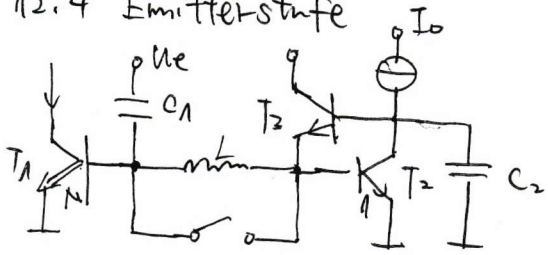 12.4 Emitterstufe
I0
Ue
C1
L
T3
T1
N
1
T2
C2